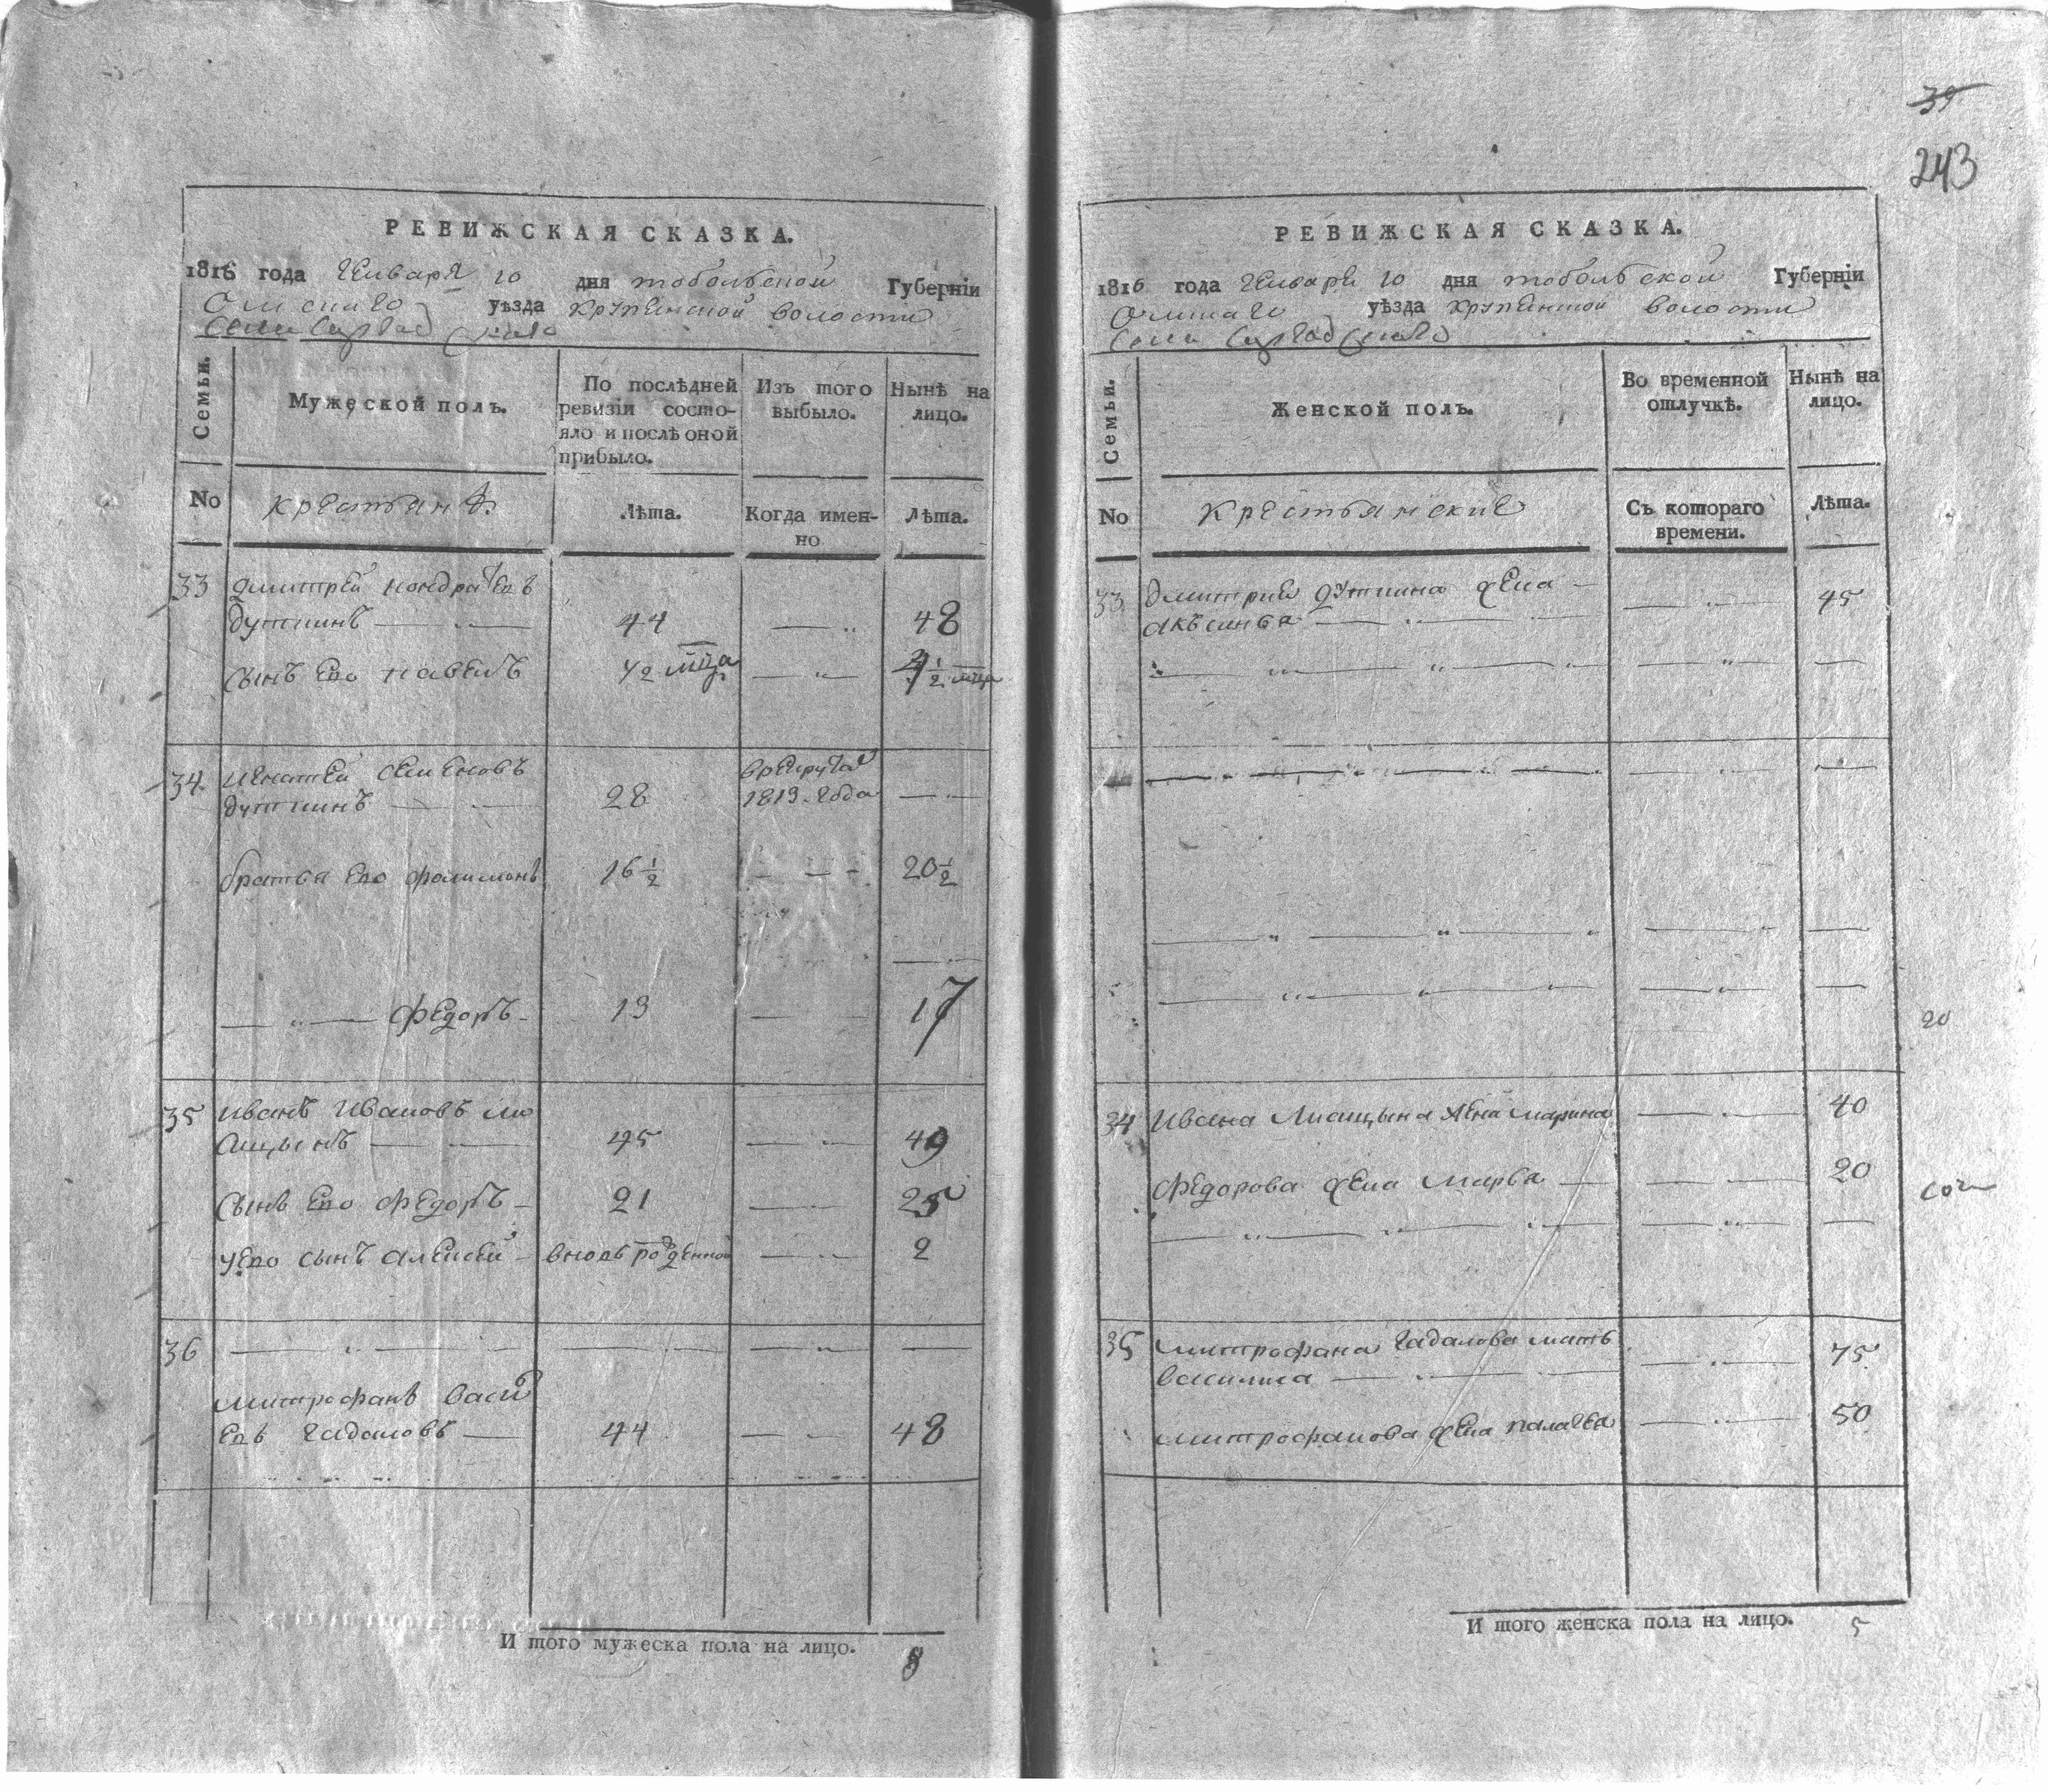 39
243
РЕВИЖСКАЯ СКАЗКА.
1816 года Генваря 10 дня тобольской Губернїи
Омскаго уѣзда крупенской волости
Села
Семьи.
Мужеской полъ.
По послѣдней ревизїи состояло и послѣ оной прибыло.
Изъ того выбыло.
Нынѣ на лицо.
No
крестьянъ.
Лѣта.
Когда именно
Лѣта.
33 дмитрей кондратьевъ
дуткинъ — 44 — 48
сынъ ево павелъ 1/2 мца — 1/2 мца
34 игнатей семеновъ
дуткинъ — 28 врекруты 1813 года —
братья ево филимонъ 16 1/2 — 20 1/2
— „ — федоръ 13 — 17
35 иванъ ивановъ
45 — 49
сынъ ево федоръ 21 — 25
уево сынъ алексей вновь рожденной — 2
36 — „ — — —
митрофанъ васил
евъ гадаловъ — 44 — 48
И того мужеска пола на лицо. 8
РЕВИЖСКАЯ СКАЗКА.
1816 года Генваря 10 дня тобольской Губернїи
Омскаго уѣзда крупенской волости
Села
Семьи.
Женской полъ.
Во временной отлучкѣ.
Нынѣ на лицо.
No
крестьянские
Съ котораго времени.
Лѣта.
33 дмитрия дуткина жена — — 45
аксинья —
20
34 ивана жена марина — 40
федорова жена марья — — 20
35 митрофана гадалова мать
василиса — — 75
митрофанова жена палагея — 50
И того женска пола на лицо. 5